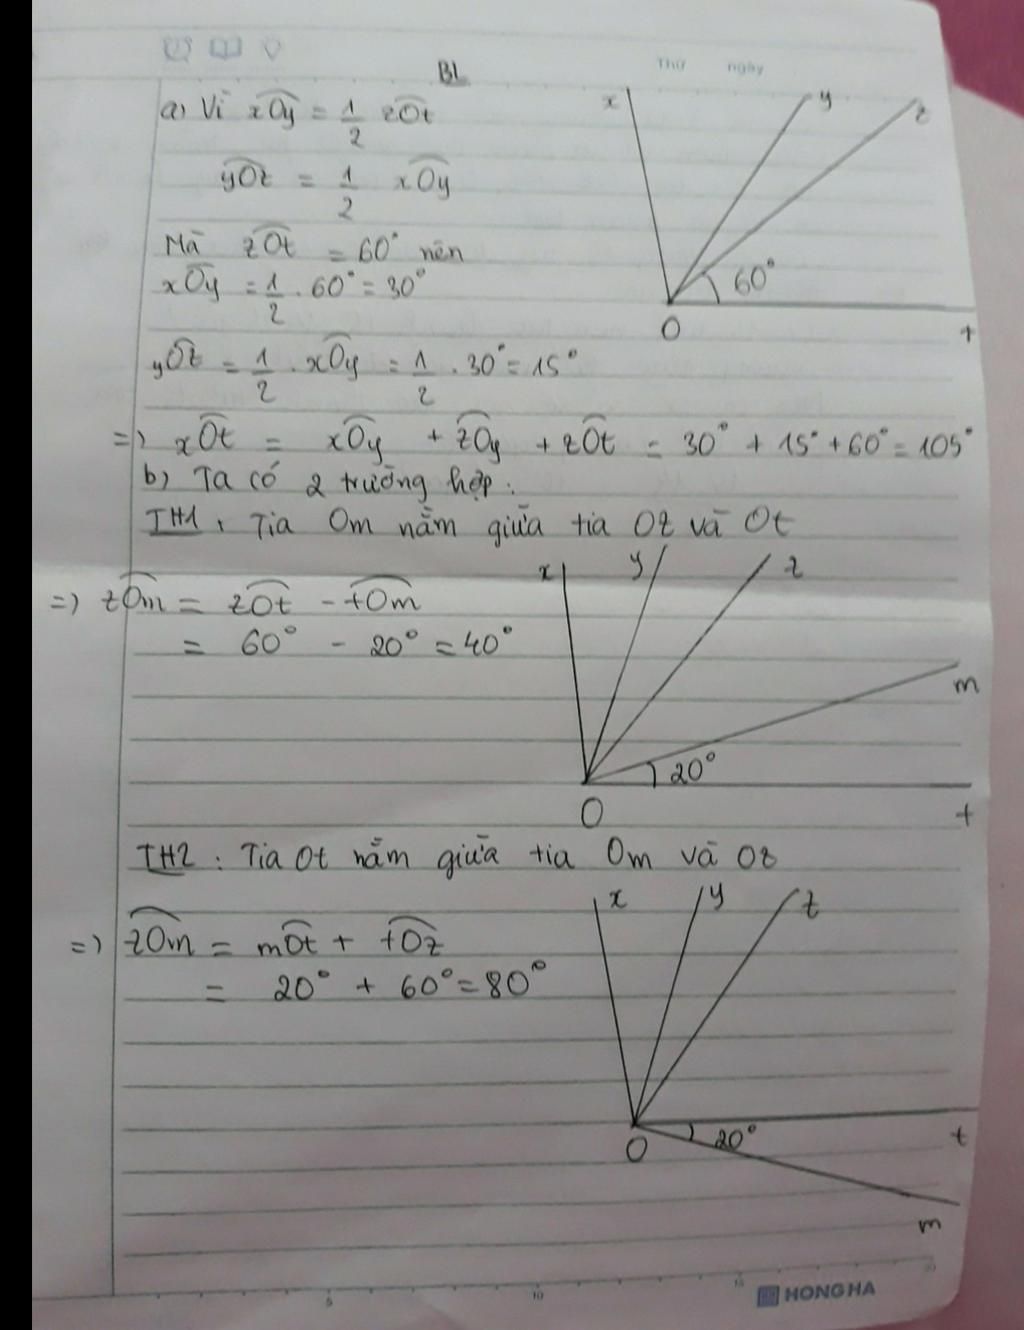 Thứ ngày
BL
a) Vì xOy = 1/2 zOt
yOz = 1/2 xOy
Mà zOt = 60° nên
xOy = 1/2 . 60° = 30°
yOz = 1/2 . xOy = 1/2 . 30° = 15°
=> xOt = xOy + zOy + zOt = 30° + 15° + 60° = 105°
x
y
z
60°
O
t
b) Ta có 2 trường hợp:
TH1: Tia Om nằm giữa tia Oz và Ot
=> zOm = zOt - tOm
= 60° - 20° = 40°
x
y
z
m
20°
O
t
TH2: Tia Ot nằm giữa tia Om và Oz
=> zOm = mOt + tOz
= 20° + 60° = 80°
x
y
z
20°
O
t
m
5 10 15 20
HONG HA